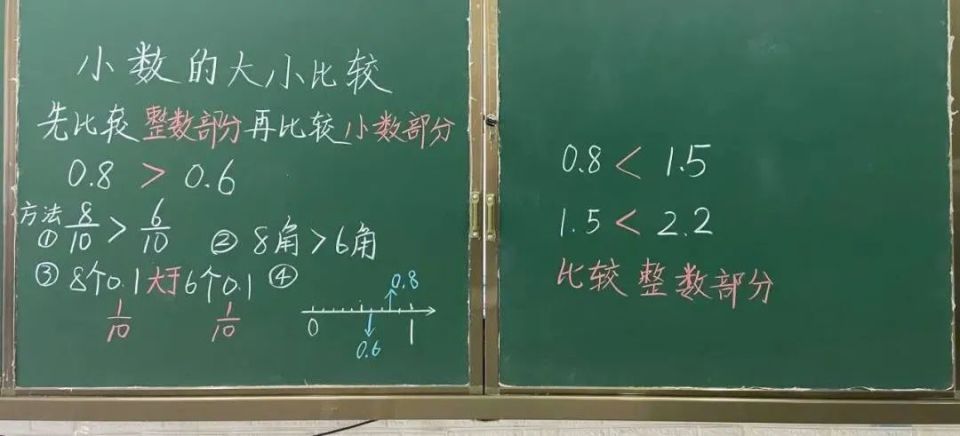 小数的大小比较
先比较整数部分再比较小数部分
0.8 > 0.6
方法
① 8/10 > 6/10 ② 8角>6角
③ 8个0.1大于6个0.1 ④
1/10 1/10
0.8
0 1
0.6
0.8 < 1.5
1.5 < 2.2
比较整数部分